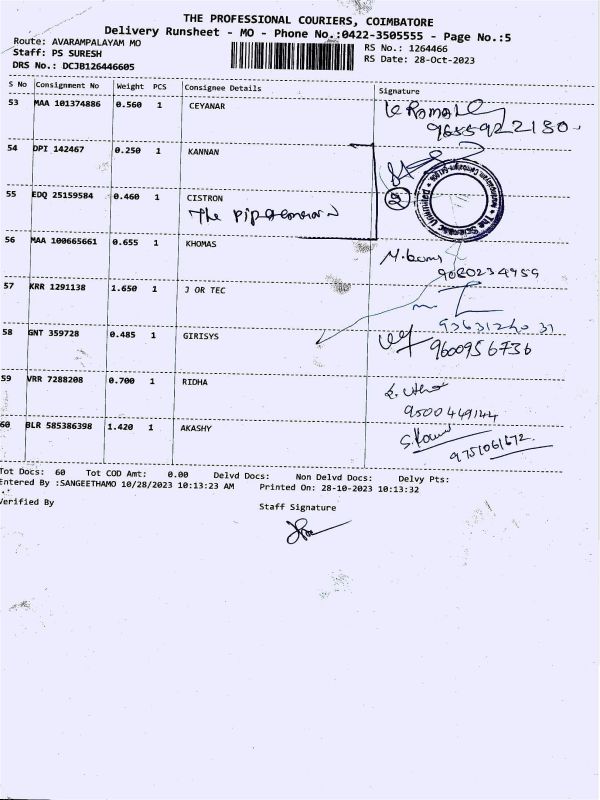 THE PROFESSIONAL COURIERS, COIMBATORE
Delivery Runsheet - MO - Phone No.:0422-3505555 - Page No.:5
Route: AVARAMPALAYAM MO
RS No.: 1264466
Staff: PS SURESH
RS Date: 28-Oct-2023
DRS No.: DCJB126446605
S No Consignment No Weight PCS Consignee Details Signature
53 MAA 101374886 0.560 1 CEYANAR
9655922180
54 DPI 142467 0.250 1 KANNAN
55 EDQ 25159584 0.460 1 CISTRON
The
56 MAA 100665661 0.655 1 KHOMAS
9080234959
57 KRR 1291138 1.650 1 J OR TEC
58 GNT 359728 0.485 1 GIRISYS
9600956736
59 VRR 7288208 0.700 1 RIDHA
9500449144
60 BLR 585386398 1.420 1 AKASHY
9751061672
Tot Docs: 60 Tot COD Amt: 0.00 Delvd Docs: Non Delvd Docs: Delvy Pts:
Entered By :SANGEETHAMO 10/28/2023 10:13:23 AM Printed On: 28-10-2023 10:13:32
Verified By
Staff Signature